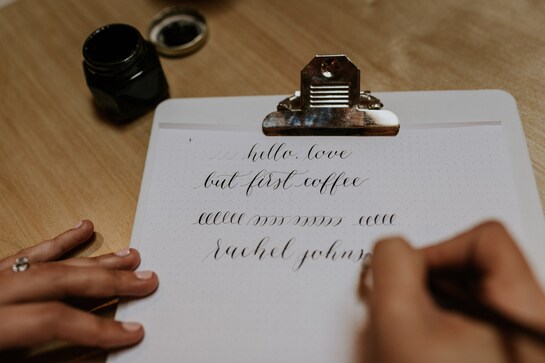 hello, love
but first coffee
rachel johns